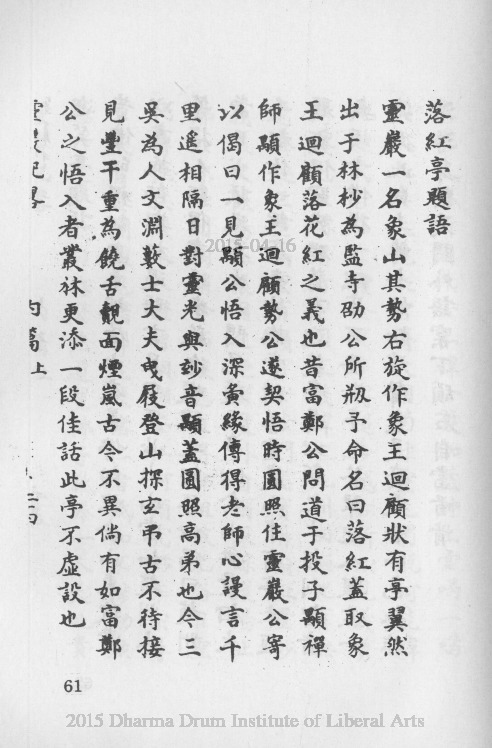 落紅亭題語
靈巖一名象山其勢右旋作象王迴顧狀有亭翼然
出于林杪為監寺劭公所剏予命名曰落紅蓋取象
王迴顧落花紅之義也昔富鄭公問道于投子顒禪
師顒作象王迴顧勢公遂契悟時圓照住靈巖公寄
以偈曰一見顒公悟入深夤緣傳得老師心謾言千
里遙相隔日對靈光與玅音顒蓋圓照高弟也今三
吳為人文淵藪士大夫曳屐登山探玄弔古不待接
見豐干重為饒舌覿面煙嵐古今不異倘有如富鄭
公之悟入者叢林更添一段佳話此亭不虛設也
靈巖記畧 內篇上
61
2015-04-16
2015 Dharma Drum Institute of Liberal Arts